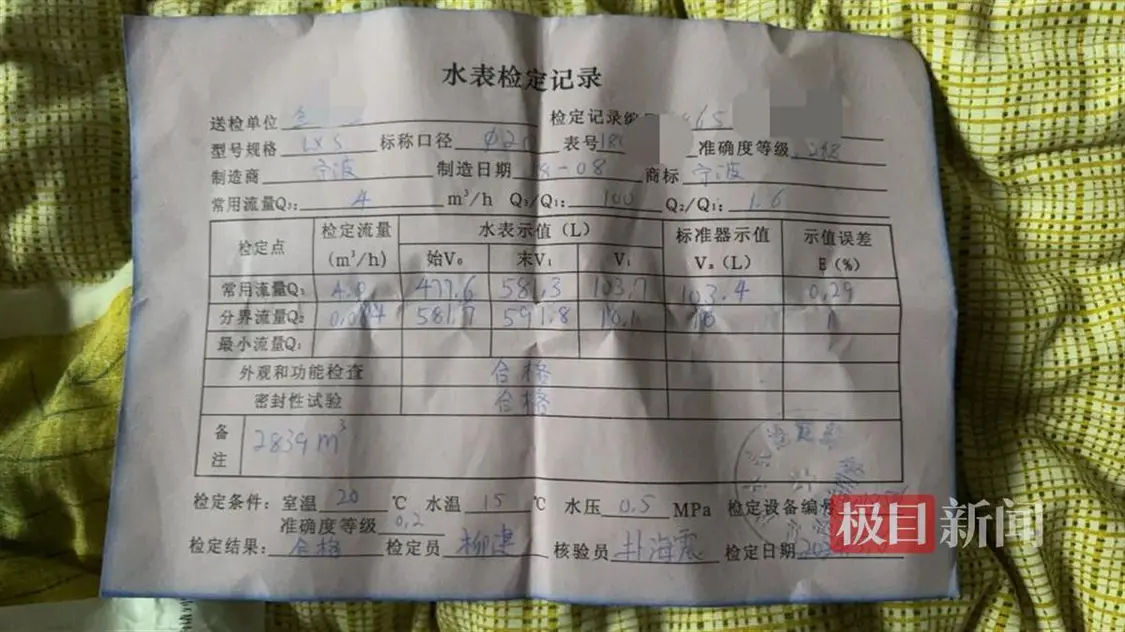 水表检定记录
送检单位 检定记录编 65
型号规格 LXS 标称口径 Φ20 表号 18 准确度等级
制造商 宁波 制造日期 18-08 商标 宁波
常用流量Q₃: 4 m³/h Q₃/Q₁: 100 Q₂/Q₁: 1.6
检定点 检定流量 (m³/h) 水表示值(L) 标准器示值 Vₐ(L) 示值误差 E(%)
始V₀ 末V₁ Vᵢ
常用流量Q₃ 4.0 477.6 581.3 103.7 103.4 0.29
分界流量Q₂ 0.064 581.7 591.8 10.1 10 1
最小流量Q₁
外观和功能检查 合格
密封性试验 合格
备注 2839 m³
检定条件: 室温 20 ℃ 水温 15 ℃ 水压 0.5 MPa 检定设备编号
准确度等级 0.2
检定结果: 合格 检定员 柳建 核验员 朴海震 检定日期
极目新闻